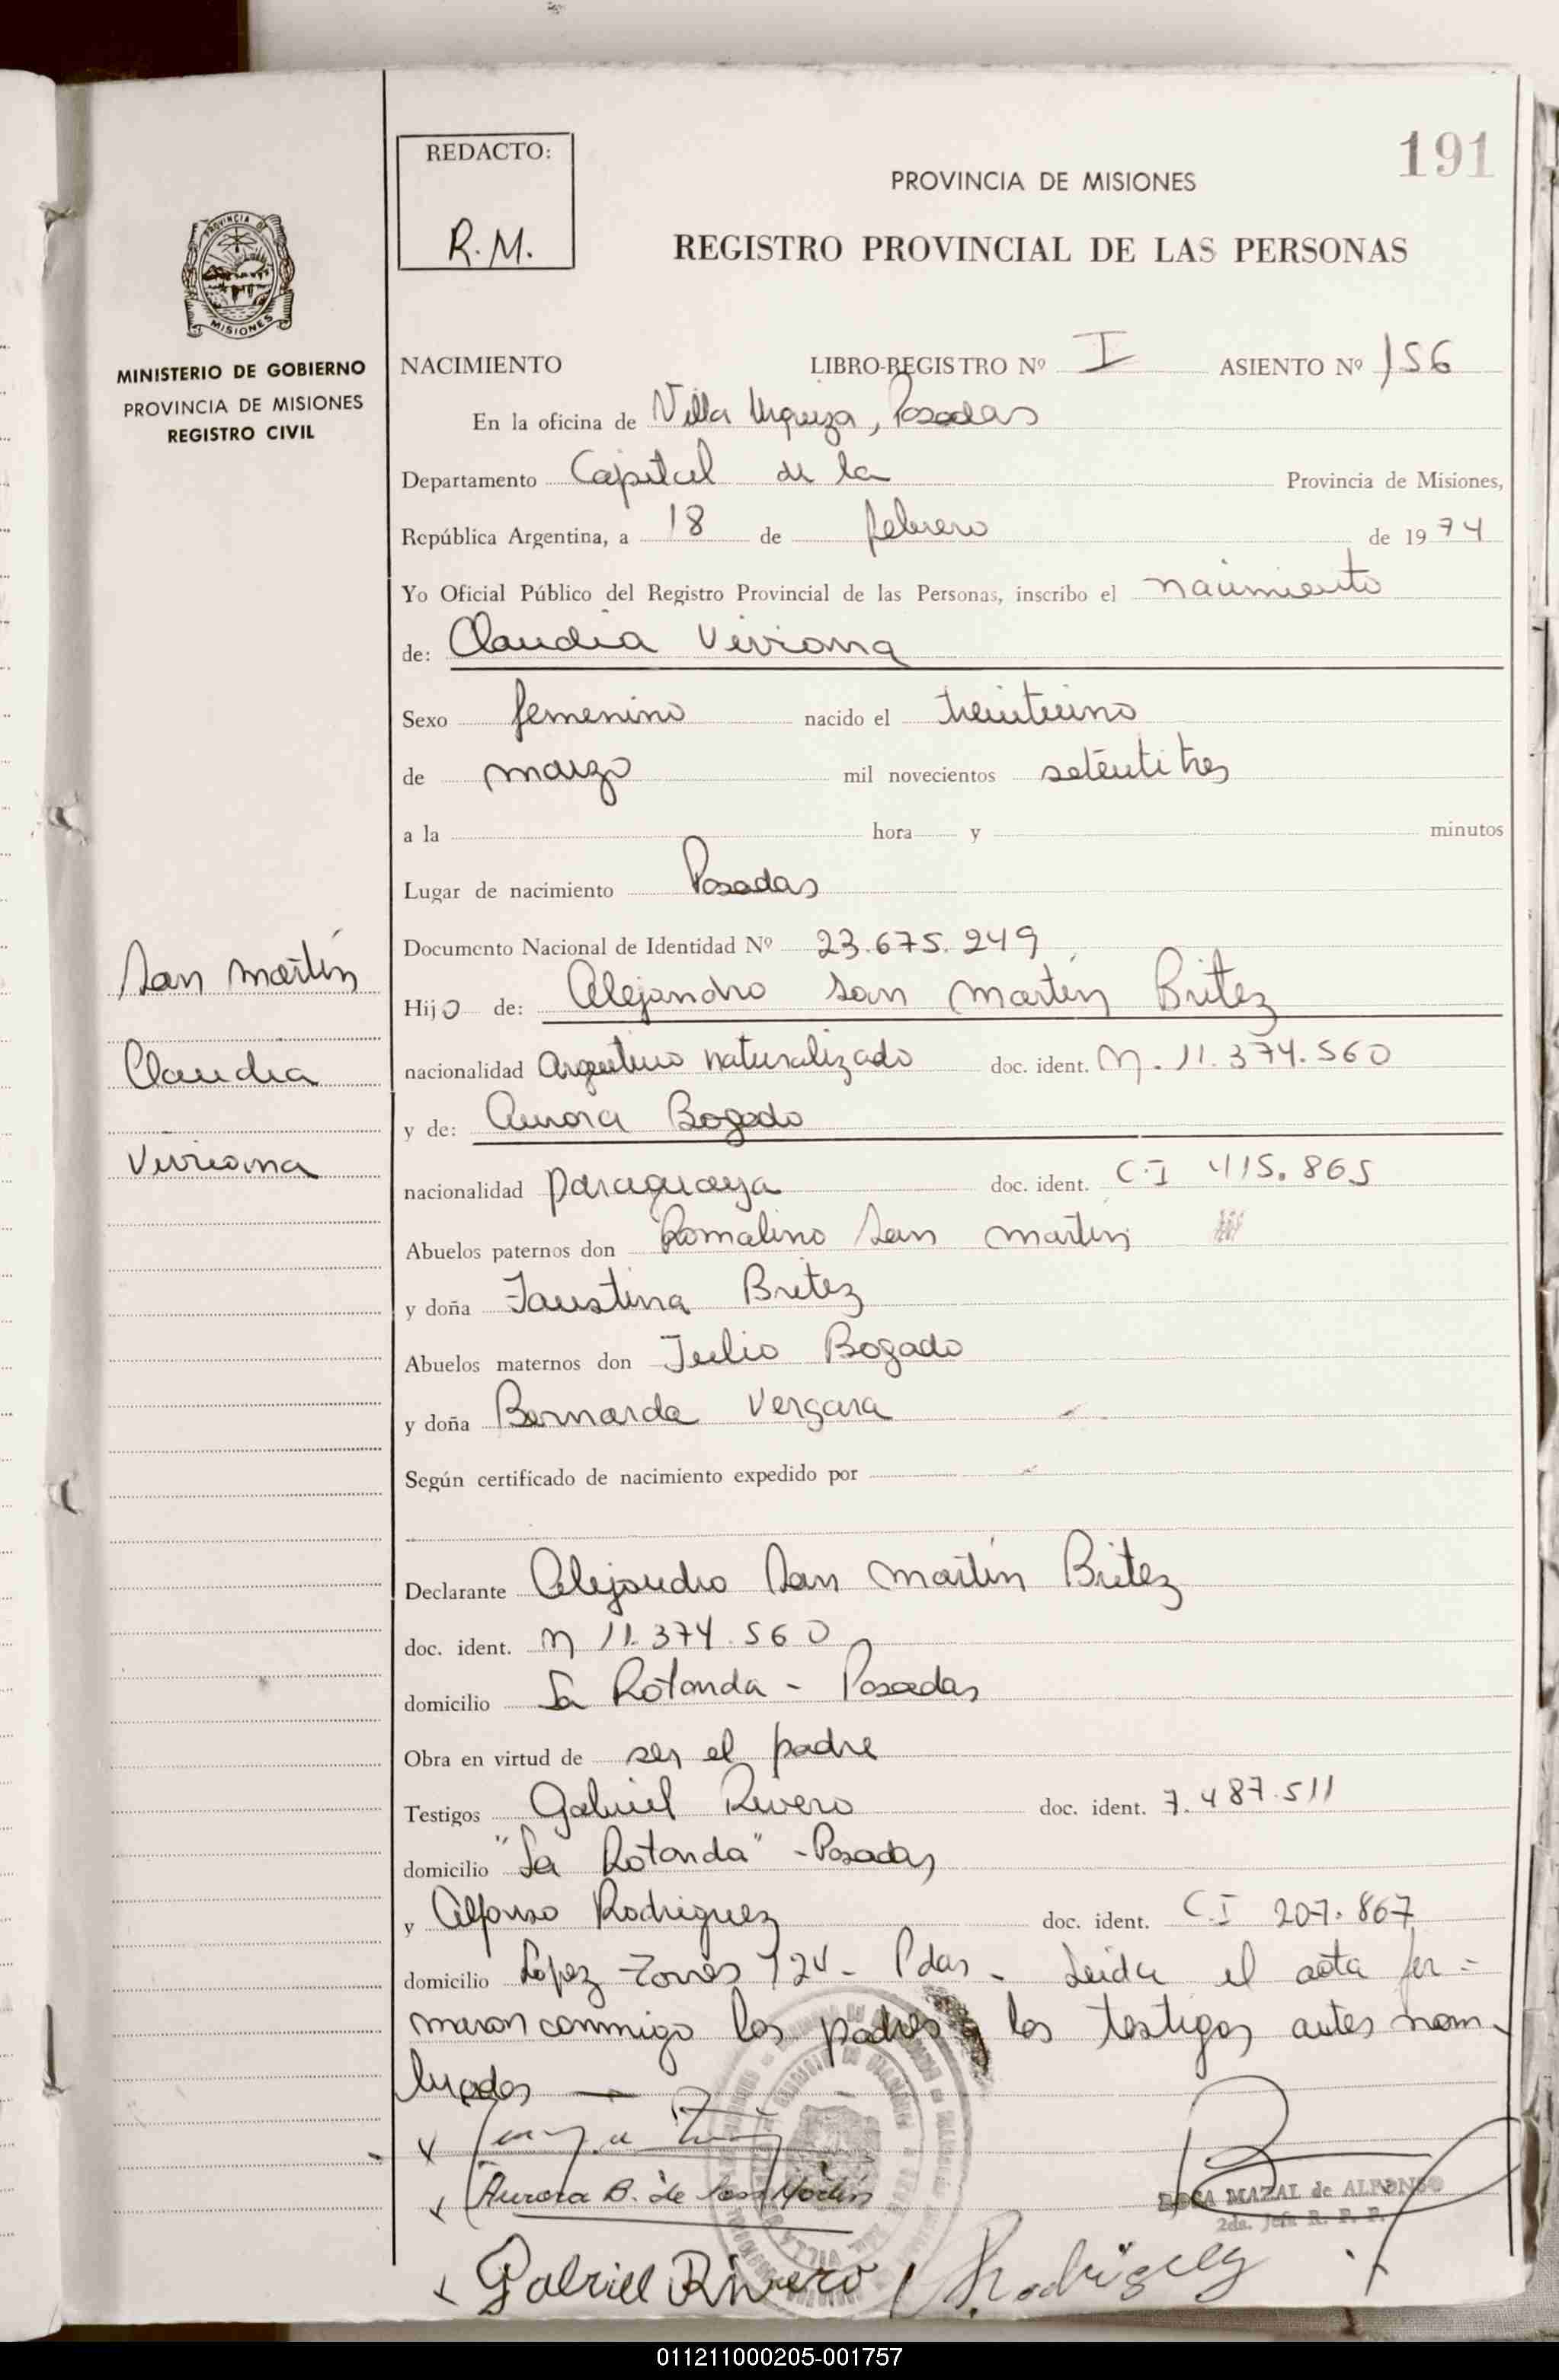 191
REDACTO:
R.M.
PROVINCIA DE MISIONES
REGISTRO PROVINCIAL DE LAS PERSONAS
PROVINCIA DE
MISIONES
MINISTERIO DE GOBIERNO
PROVINCIA DE MISIONES
REGISTRO CIVIL
NACIMIENTO LIBRO-REGISTRO Nº I ASIENTO Nº 156
En la oficina de Villa Urquiza, Posadas
Departamento Capital de la Provincia de Misiones,
República Argentina, a 18 de febrero de 1974
Yo Oficial Público del Registro Provincial de las Personas, inscribo el nacimiento
de: Claudia Viviana
Sexo femenino nacido el treintiuno
de marzo mil novecientos setentitres
a la hora y minutos
Lugar de nacimiento Posadas
Documento Nacional de Identidad Nº 23.675.249
San Martín
Claudia
Viviana
Hijo de: Alejandro San Martín Britez
nacionalidad Argentino naturalizado doc. ident. M. 11.374.560
y de: Aurora Bogado
nacionalidad paraguaya doc. ident. C.I 415.865
Abuelos paternos don Romalino San Martín
y doña Faustina Britez
Abuelos maternos don Julio Bogado
y doña Bernarda Vergara
Según certificado de nacimiento expedido por
Declarante Alejandro San Martín Britez
doc. ident. M 11.374.560
domicilio La Rotonda - Posadas
Obra en virtud de ser el padre
Testigos Gabriel Rivero doc. ident. 7.487.511
domicilio "La Rotonda" - Posadas
y Alfonso Rodriguez doc. ident. C.I 207.867
domicilio López Torres 124 - Pdas - Leida el acta fir-
maron conmigo los padres y los testigos antes nom-
brados
Aurora B. de San Martín
ROSA MAZAL de ALFONSO
2da. Jefa R. P. P.
Gabriel Rivero Rodriguez
011211000205-001757